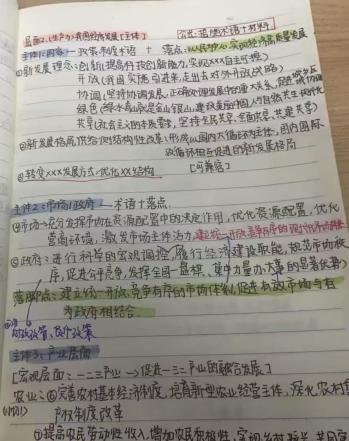 主体1:国家—政策、术语 + 落点:以人民为中心,实现经济高质量发展
①新发展理念:创新(提高科技创新能力,实现XXX自主可控)
开放(我国实施引进来,走出去对外开放战略)
协调(坚持协调发展,正确处理发展中的重大关系,促进城乡
绿色(绿水青山就是金山银山,建设美丽中国,人与自然共生现代化
共享(社会主义的本质要求,坚持全民共享、全面共享、共建共享)
②新发展格局供给侧结构性改革:形成以国内大循环为主体,国内国际
双循环相互促进的新发展格局
③转变XXX发展方式,优化XX结构
主体2:市场与政府—术语+落点
①市场→充分发挥市场在资源配置中的决定作用,优化资源配置,优化
营商环境,激发市场主体活力
②政府:进行科学的宏观调控,履行经济建设职能,规范市场秩
序,促进公平竞争,发挥全国一盘棋,集中力量办大事的显著优势
落脚点:建立统一开放,竞争有序的市场体制,促进有效市场与有
为政府相结合。
财政政策、货币政策
主体3:产业层面
[宏观层面:一二三产业→促进一二三产业的融合发展]
农业:①完善农村基本经济制度,培育新型农业经营主体,深化农村集
产权制度改革